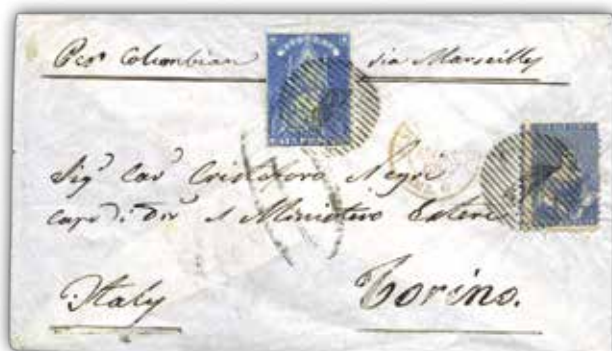 Per Columbian via Marseilles
SIX PENCE
Sig.r Cav.r Cristoforo Negri
capo di Div.e Ministero Esteri
Italy Torino.